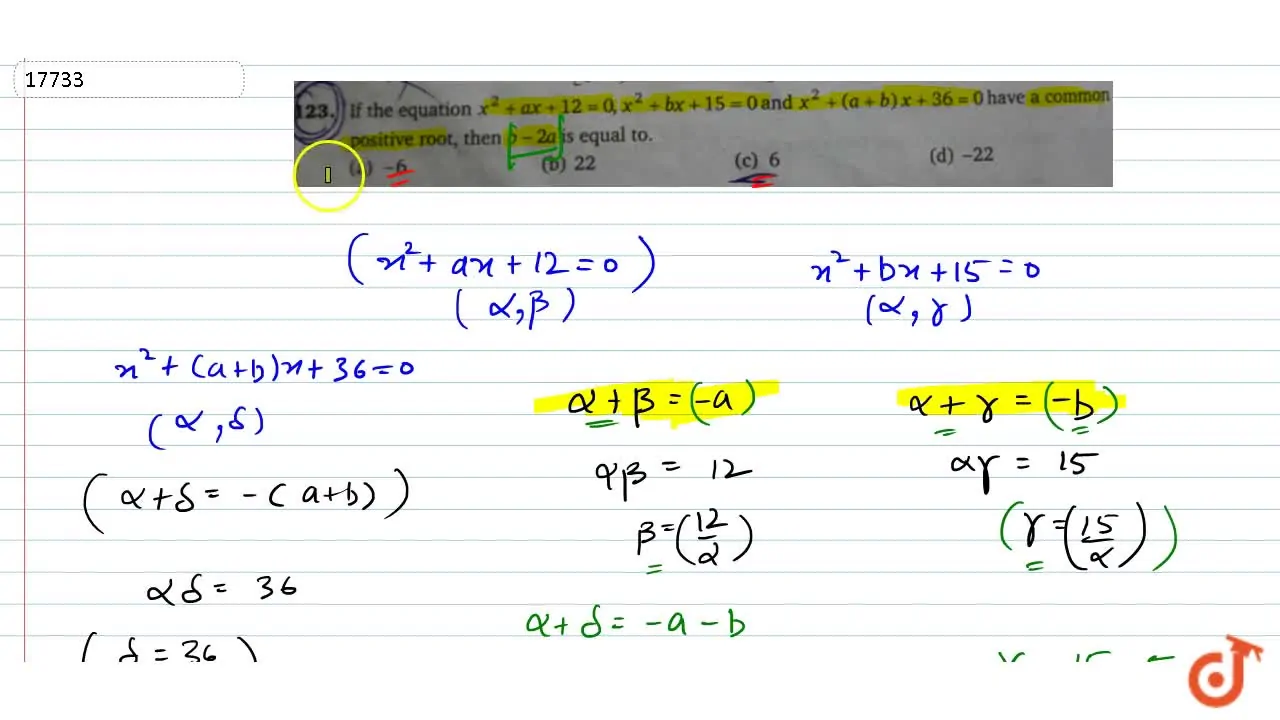 17733
123. If the equation x² + ax + 12 = 0, x² + bx + 15 = 0 and x² + (a + b) x + 36 = 0 have a common
positive root, then b − 2a is equal to.
−6 (b) 22 (c) 6 (d) −22
(x² + ax + 12 = 0) x² + bx + 15 = 0
(α, β) (α, γ)
x² + (a+b)x + 36 = 0
(α, δ)
α + β = (-a) α + γ = (-b)
αβ = 12 αγ = 15
(α + δ = -(a+b))
β = (12/α) (γ = (15/α))
αδ = 36
α + δ = -a - b
(δ = 36)